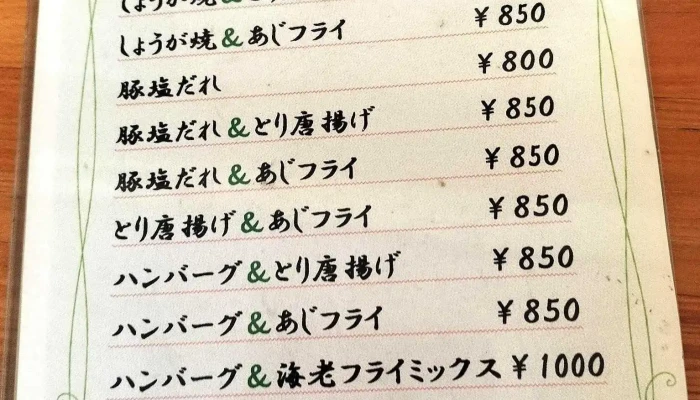 しょうが焼&とり
しょうが焼&あじフライ ¥850
豚塩だれ ¥800
豚塩だれ&とり唐揚げ ¥850
豚塩だれ&あじフライ ¥850
とり唐揚げ&あじフライ ¥850
ハンバーグ&とり唐揚げ ¥850
ハンバーグ&あじフライ ¥850
ハンバーグ&海老フライミックス ¥1000